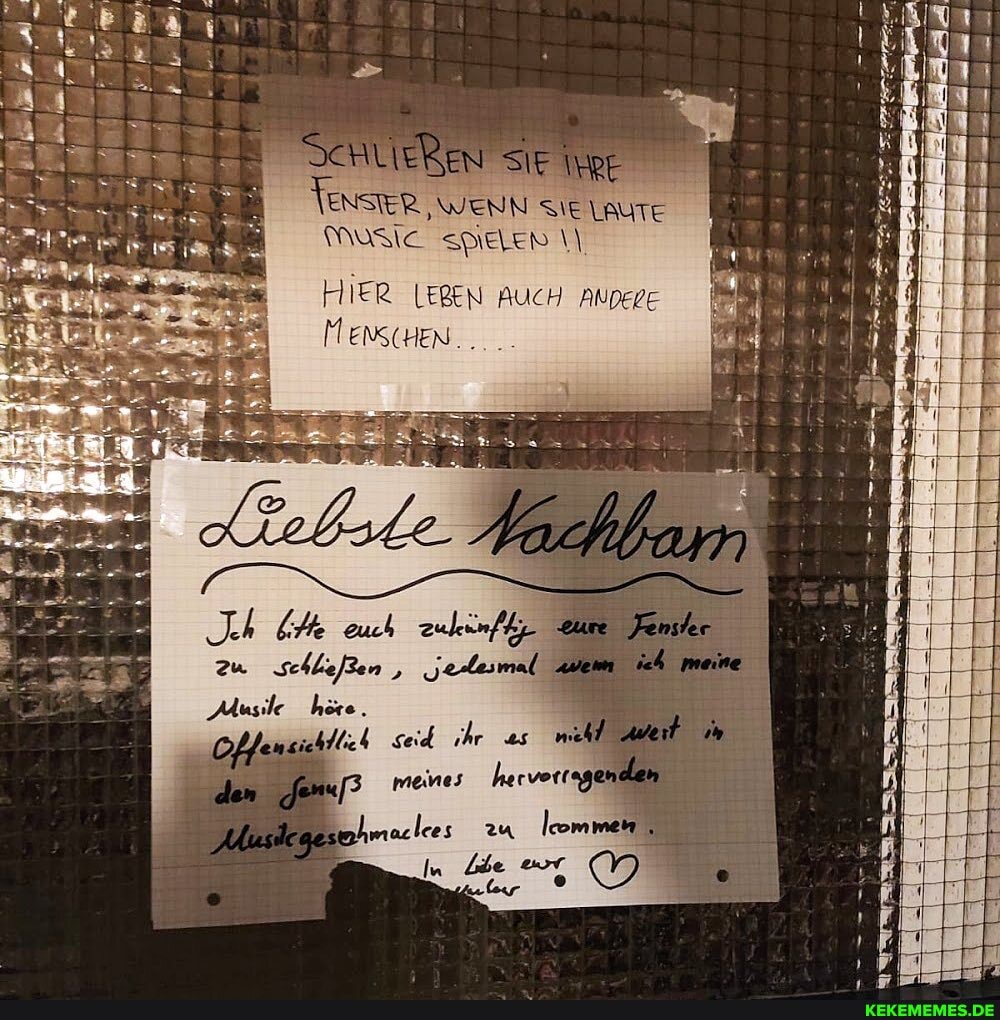 SCHLIEßEN SIE IHRE
FENSTER, WENN SIE LAUTE
MUSIC SPIELEN !!
HIER LEBEN AUCH ANDERE
MENSCHEN.....
Liebste Nachbarn
Ich bitte euch zukünftig eure Fenster
zu schließen, jedesmal wenn ich meine
Musik höre.
Offensichtlich seid ihr es nicht wert in
den Genuß meines hervorragenden
Musikgeschmackes zu kommen.
In Liebe euer
KEKEMEMES.DE